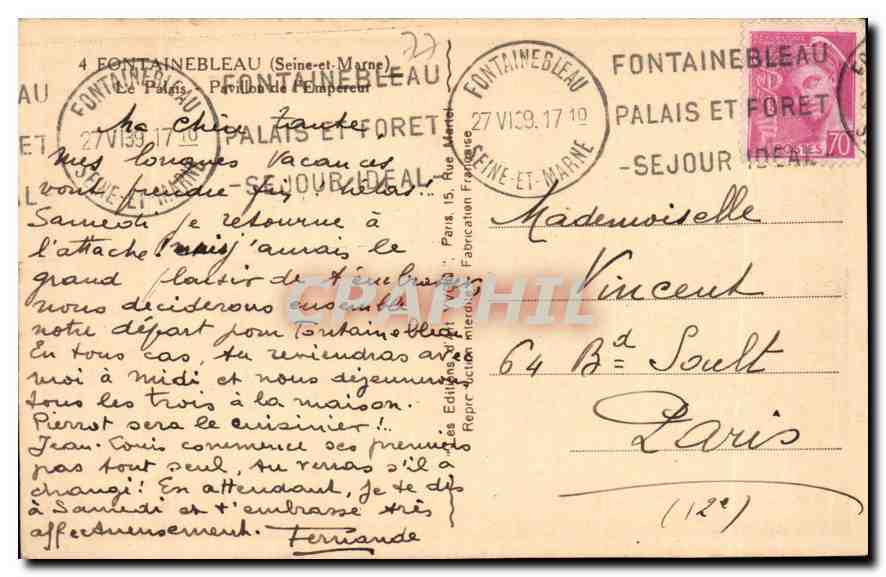 4 FONTAINEBLEAU (Seine-et-Marne)
Le Palais - Pavillon de l'Empereur
77
FONTAINEBLEAU
27 VI 39.17 10
SEINE-ET-MARNE
FONTAINEBLEAU
PALAIS ET FORET
-SEJOUR IDEAL-
Ma chère Tante
Mes longues vacances
vont prendre fin, hélas!!
Samedi je retourne à
l'attache! mais j'aurais le
grand plaisir de t'embrasser
nous deciderons ensemble
notre départ pour Fontainebleau
En tous cas, tu reviendras avec
moi à midi et nous déjeunerons
tous les trois à la maison.
Pierrot sera le cuisinier!..
Jean-Louis commence ses premiers
pas tout seul, tu verras s'il a
changé! En attendant, je te dis
à Samedi et t'embrasse très
affectueusement. Fernande
"Les Editions d'Art YVON" Paris, 15, Rue Martel
Reproduction interdite Fabrication Française
FONTAINEBLEAU
27 VI 39.17 10
SEINE-ET-MARNE
FONTAINEBLEAU
PALAIS ET FORET
-SEJOUR IDEAL-
POSTES 70
Mademoiselle
Vincent
64 Bd Soult
Paris
(12e)
CPAPHIL